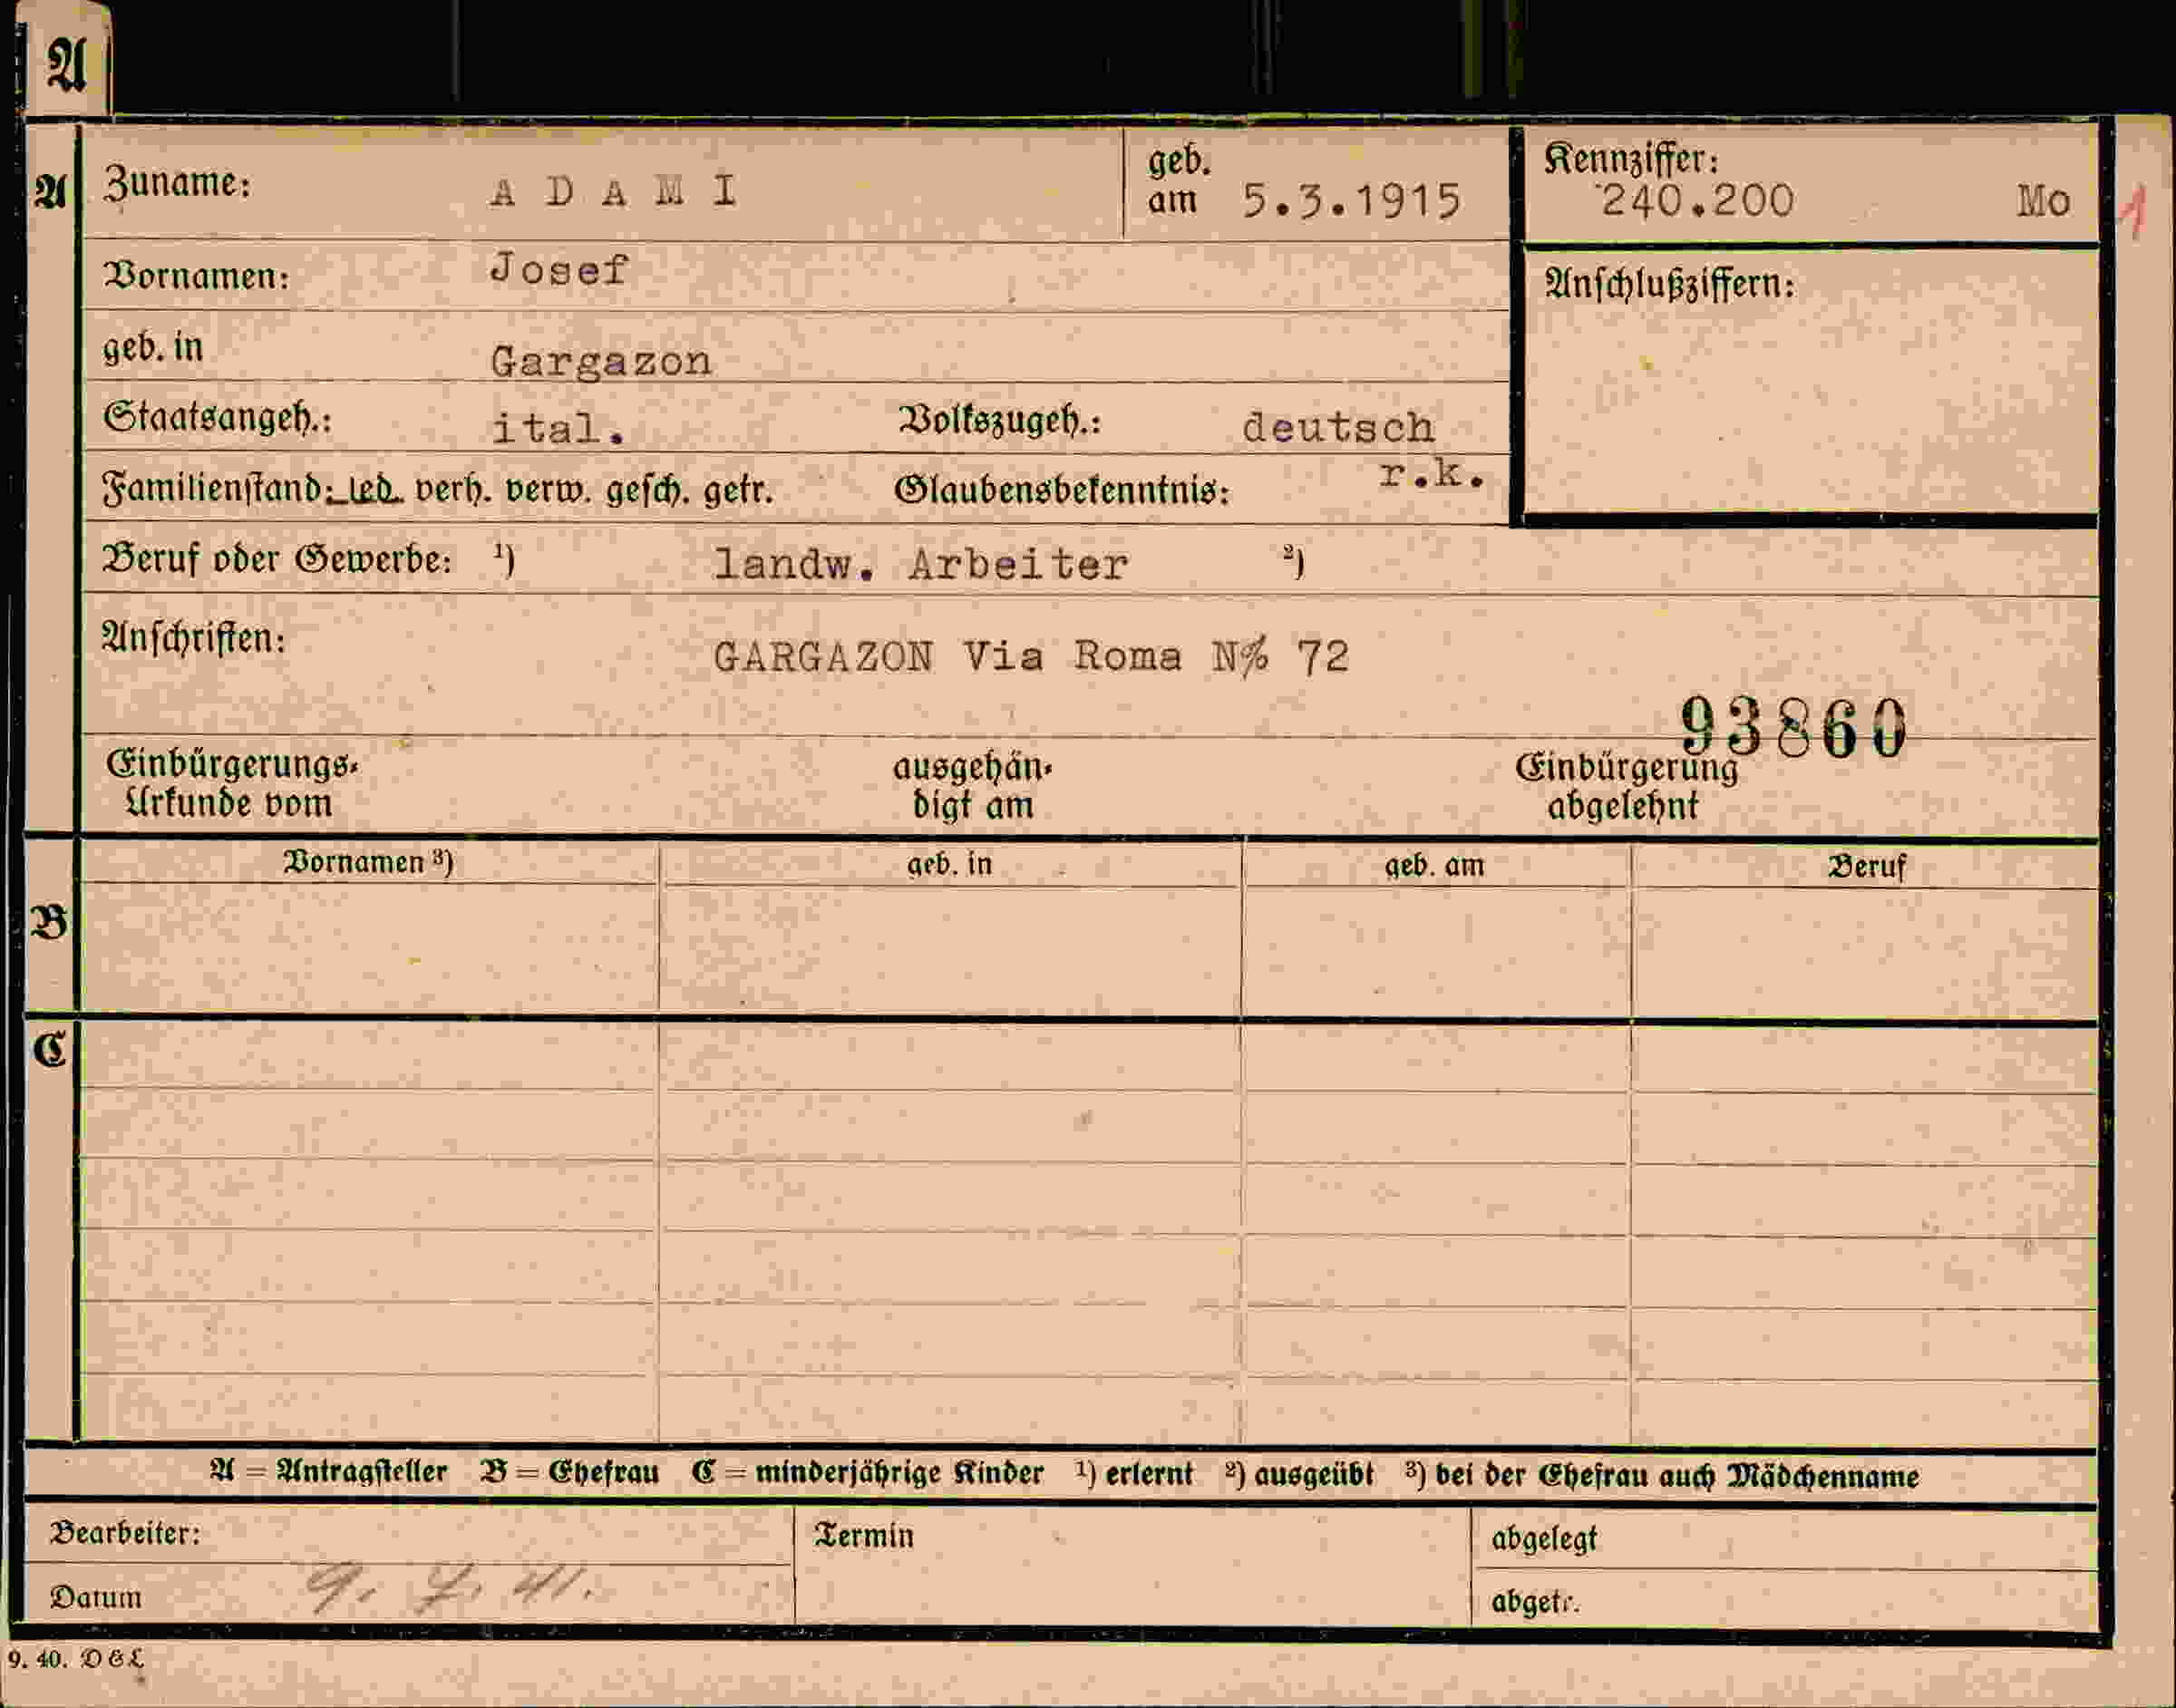 A
A Zuname: ADAMI geb. am 5.3.1915 Kennziffer: 240.200 Mo 1
Vornamen: Josef Anschlußziffern:
geb. in Gargazon
Staatsangeh.: ital. Volkszugeh.: deutsch
Familienstand: led. verh. verw. gesch. getr. Glaubensbekenntnis: r.k.
Beruf oder Gewerbe: ¹) landw. Arbeiter ²)
Anschriften: GARGAZON Via Roma N% 72
93860
Einbürgerungs- ausgehän- Einbürgerung
Urkunde vom digt am abgelehnt
Vornamen ³) geb. in geb. am Beruf
B
C
A = Antragsteller B = Ehefrau C = minderjährige Kinder ¹) erlernt ²) ausgeübt ³) bei der Ehefrau auch Mädchenname
Bearbeiter: Termin abgelegt
Datum 9. 7. 41. abgetr.
9. 40. D & L